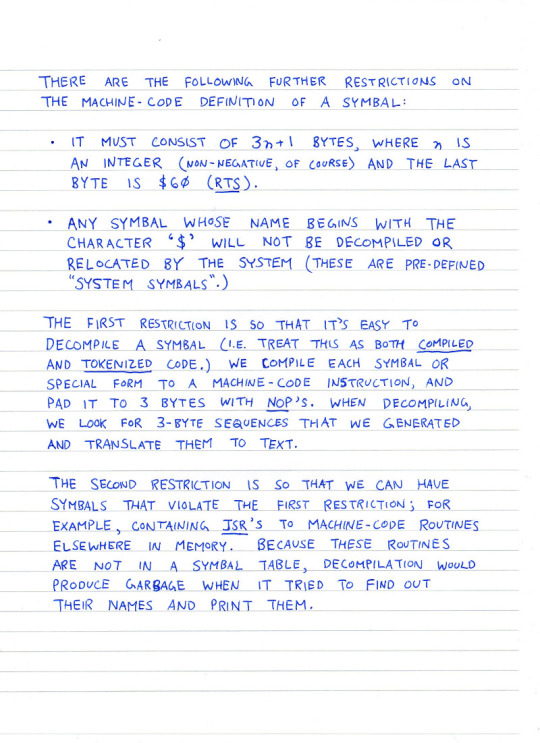 THERE ARE THE FOLLOWING FURTHER RESTRICTIONS ON
THE MACHINE-CODE DEFINITION OF A SYMBAL:
• IT MUST CONSIST OF 3n+1 BYTES, WHERE n IS
AN INTEGER (NON-NEGATIVE, OF COURSE) AND THE LAST
BYTE IS $60 (RTS).
• ANY SYMBAL WHOSE NAME BEGINS WITH THE
CHARACTER '$' WILL NOT BE DECOMPILED OR
RELOCATED BY THE SYSTEM (THESE ARE PRE-DEFINED
"SYSTEM SYMBALS".)
THE FIRST RESTRICTION IS SO THAT IT'S EASY TO
DECOMPILE A SYMBAL (I.E. TREAT THIS AS BOTH COMPILED
AND TOKENIZED CODE.) WE COMPILE EACH SYMBAL OR
SPECIAL FORM TO A MACHINE-CODE INSTRUCTION, AND
PAD IT TO 3 BYTES WITH NOP'S. WHEN DECOMPILING,
WE LOOK FOR 3-BYTE SEQUENCES THAT WE GENERATED
AND TRANSLATE THEM TO TEXT.
THE SECOND RESTRICTION IS SO THAT WE CAN HAVE
SYMBALS THAT VIOLATE THE FIRST RESTRICTION; FOR
EXAMPLE, CONTAINING JSR'S TO MACHINE-CODE ROUTINES
ELSEWHERE IN MEMORY. BECAUSE THESE ROUTINES
ARE NOT IN A SYMBAL TABLE, DECOMPILATION WOULD
PRODUCE GARBAGE WHEN IT TRIED TO FIND OUT
THEIR NAMES AND PRINT THEM.